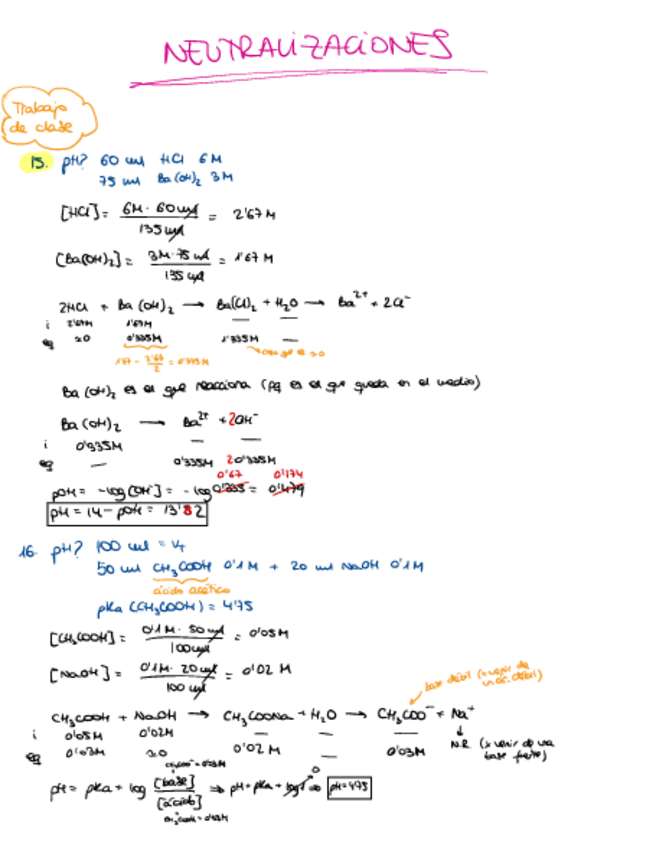 NEUTRALIZACIONES
Trabajo
de clase
15. pH? 60 ml HCl 6M
75 ml Ba(OH)₂ 3M
[HCl] = 6M · 60 ml / 135 ml = 2'67 M
[Ba(OH)₂] = 3M · 75 ml / 135 ml = 1'67 M
2HCl + Ba(OH)₂ → BaCl₂ + H₂O → Ba²⁺ + 2Cl⁻
i 2'67M 1'67M — —
eq ≈0 0'335M 1'335M —
1'67 - 2'67/2 = 0'335 M
Ba(OH)₂ es el que reacciona (pq es el que queda en el medio)
Ba(OH)₂ → Ba²⁺ + 2OH⁻
i 0'335M — —
eq — 0'335M 2 0'335M
0'67 0'174
pOH = -log[OH⁻] = -log 0'335 = 0'479
pH = 14 - pOH = 13'82
16. pH? 100 ml = V
50 ml CH₃COOH 0'1M + 20 ml NaOH 0'1M
ácido acético
pKa (CH₃COOH) = 4'75
[CH₃COOH] = 0'1M · 50 ml / 100 ml = 0'05M
[NaOH] = 0'1M · 20 ml / 100 ml = 0'02 M
base débil (x venir de
un ác. débil)
CH₃COOH + NaOH → CH₃COONa + H₂O → CH₃COO⁻ + Na⁺
i 0'05M 0'02M — — —
eq 0'03M ≈0 0'02M — 0'03M
N.R. (x venir de una
base fuerte)
pH = pKa + log [base] / [ácido] ⇒ pH = pKa + log 1 ⇒ pH = 4'75
0